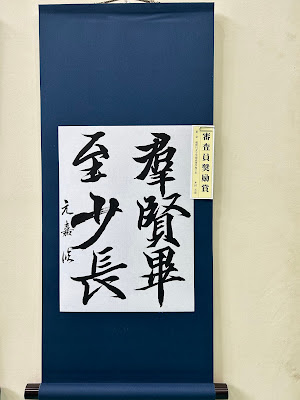 羣賢畢
至少長
審査員奨励賞